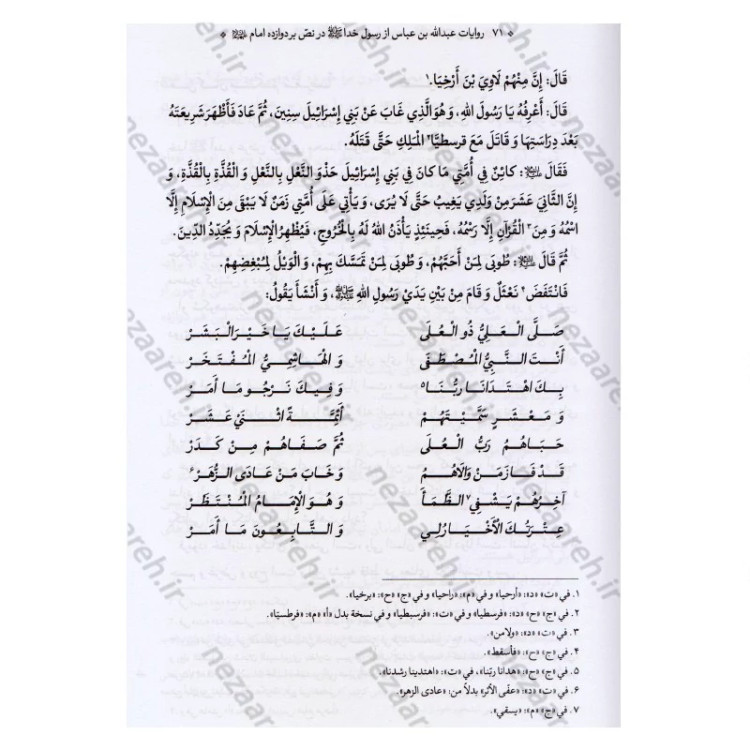 * ٧١ روایات عبدالله بن عباس از رسول خدا ﷺ در نصّ بر دوازده امام *
قَالَ: إِنَّ مِنْهُمْ لَاوِيَ بْنَ أَرْخِيَا.١
قَالَ: أَعْرِفُهُ يَا رَسُولَ اللهِ، وَ هُوَ الَّذِي غَابَ عَنْ بَنِي إِسْرَائِيلَ سِنِينَ، ثُمَّ عَادَ فَأَظْهَرَ شَرِيعَتَهُ
بَعْدَ دِرَاسَتِهَا وَ قَاتَلَ مَعَ قرسطيَّا٢ الْمَلِكِ حَتَّى قَتَلَهُ.
فَقَالَ: كائِنٌ فِي أُمَّتِي مَا كَانَ فِي بَنِي إِسْرَائِيلَ حَذْوَ النَّعْلِ بِالنَّعْلِ وَ الْقُذَّةِ بِالْقُذَّةِ، وَ
إِنَّ الثَّانِيَ عَشَرَ مِنْ وَلَدِي يَغِيبُ حَتَّى لَا يُرَى، وَ يَأْتِي عَلَى أُمَّتِي زَمَنٌ لَا يَبْقَى مِنَ الْإِسْلَامِ إِلَّا
اسْمُهُ وَ مِنَ٣ الْقُرْآنِ إِلَّا رَسْمُهُ، فَحِينَئِذٍ يَأْذَنُ اللهُ لَهُ بِالْخُرُوجِ، فَيُظْهِرُ الْإِسْلَامَ وَ يُجَدِّدُ الدِّينَ.
ثُمَّ قَالَ: طُوبَى لِمَنْ أَحَبَّهُمْ، وَ طُوبَى لِمَنْ تَمَسَّكَ بِهِمْ، وَ الْوَيْلُ لِمُبْغِضِهِمْ.
فَانْتَفَضَ٤ نَعْثَلُ وَ قَامَ مِنْ بَيْنِ يَدَيْ رَسُولِ اللهِ ﷺ، وَ أَنْشَأَ يَقُولُ:
صَلَّى الْعَلِيُّ ذُو الْعُلَى عَلَيْكَ يَا خَيْرَ الْبَشَرْ
أَنْتَ النَّبِيُّ الْمُصْطَفَى وَ الْهَاشِمِيُّ الْمُفْتَخَرْ
بِكَ اهْتَدَانَا رَبُّنَا٥ وَ فِيكَ نَرْجُو مَا أَمَرْ
وَ مَعْشَرٍ سَمَّيْتَهُمْ أَئِمَّةً اثْنَيْ عَشَرْ
حَبَاهُمُ رَبُّ الْعُلَى ثُمَّ صَفَاهُمْ مِنْ كَدَرْ
قَدْ فَازَ مَنْ وَالَاهُمُ وَ خَابَ مَنْ عَادَى الزُّهَرْ٦
آخِرُهُمْ يَشْفِي٧ الظَّمَأَ وَ هُوَ الْإِمَامُ الْمُنْتَظَرْ
عِتْرَتُكَ الْأَخْيَارُ لِي وَ التَّابِعُونَ مَا أَمَرْ
١. في «ت» «د»: «أرحيا» و في «م»: «راحيا» و في «ج» «ح»: «برخيا».
٢. في «ج» «ح» «د»: «فرسطيا» و في «ت»: «فرسبطيا» و في نسخة بدل «أ» «م»: «فرطسيّا».
٣. في «ت» «د»: «ولا من».
٤. في «ج» «ح»: «فأسقط».
٥. في «ج» «ح»: «هدانا ربّنا»، في «ت»: «اهتدينا رشدنا».
٦. في «ت» «د»: «عفّى الأثر» بدلاً من: «عادى الزهر».
٧. في «ج» «م»: «يسقي».
nezaareh.ir
nezaareh.ir
nezaareh.ir
nezaareh.ir
nezaareh.ir
nezaareh.ir